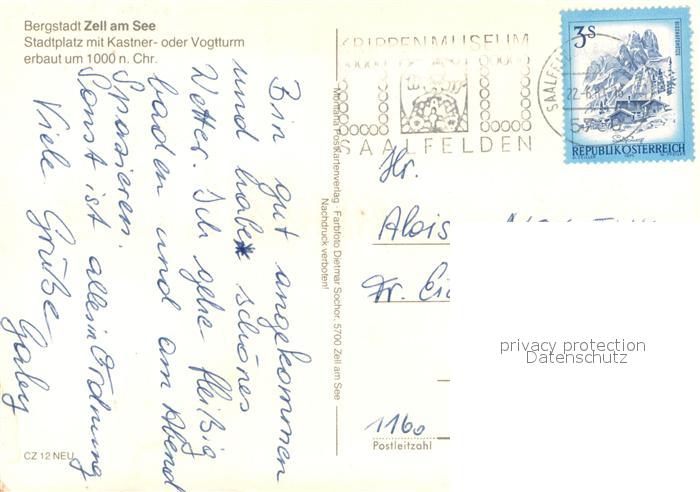 Bergstadt Zell am See
Stadtplatz mit Kastner- oder Vogtturm
erbaut um 1000 n. Chr.
Bin gut angekommen
und habe schönes
Wetter. Ich gehe fleißig
baden und am Abend
Spazieren.
Sonst ist alles in Ordnung
Viele Grüße
Gaby
CZ 12 NEU
Mondial Postkartenverlag · Farbfoto Dietmar Sochor, 5700 Zell am See
Nachdruck verboten!
KRIPPENMUSEUM
SAALFELDEN
SAALFELDEN
3S
BISCHOFSMÜTZE
Salzburg
REPUBLIK ÖSTERREICH
Hr.
Alois
Fr.
privacy protection
Datenschutz
1160
Postleitzahl